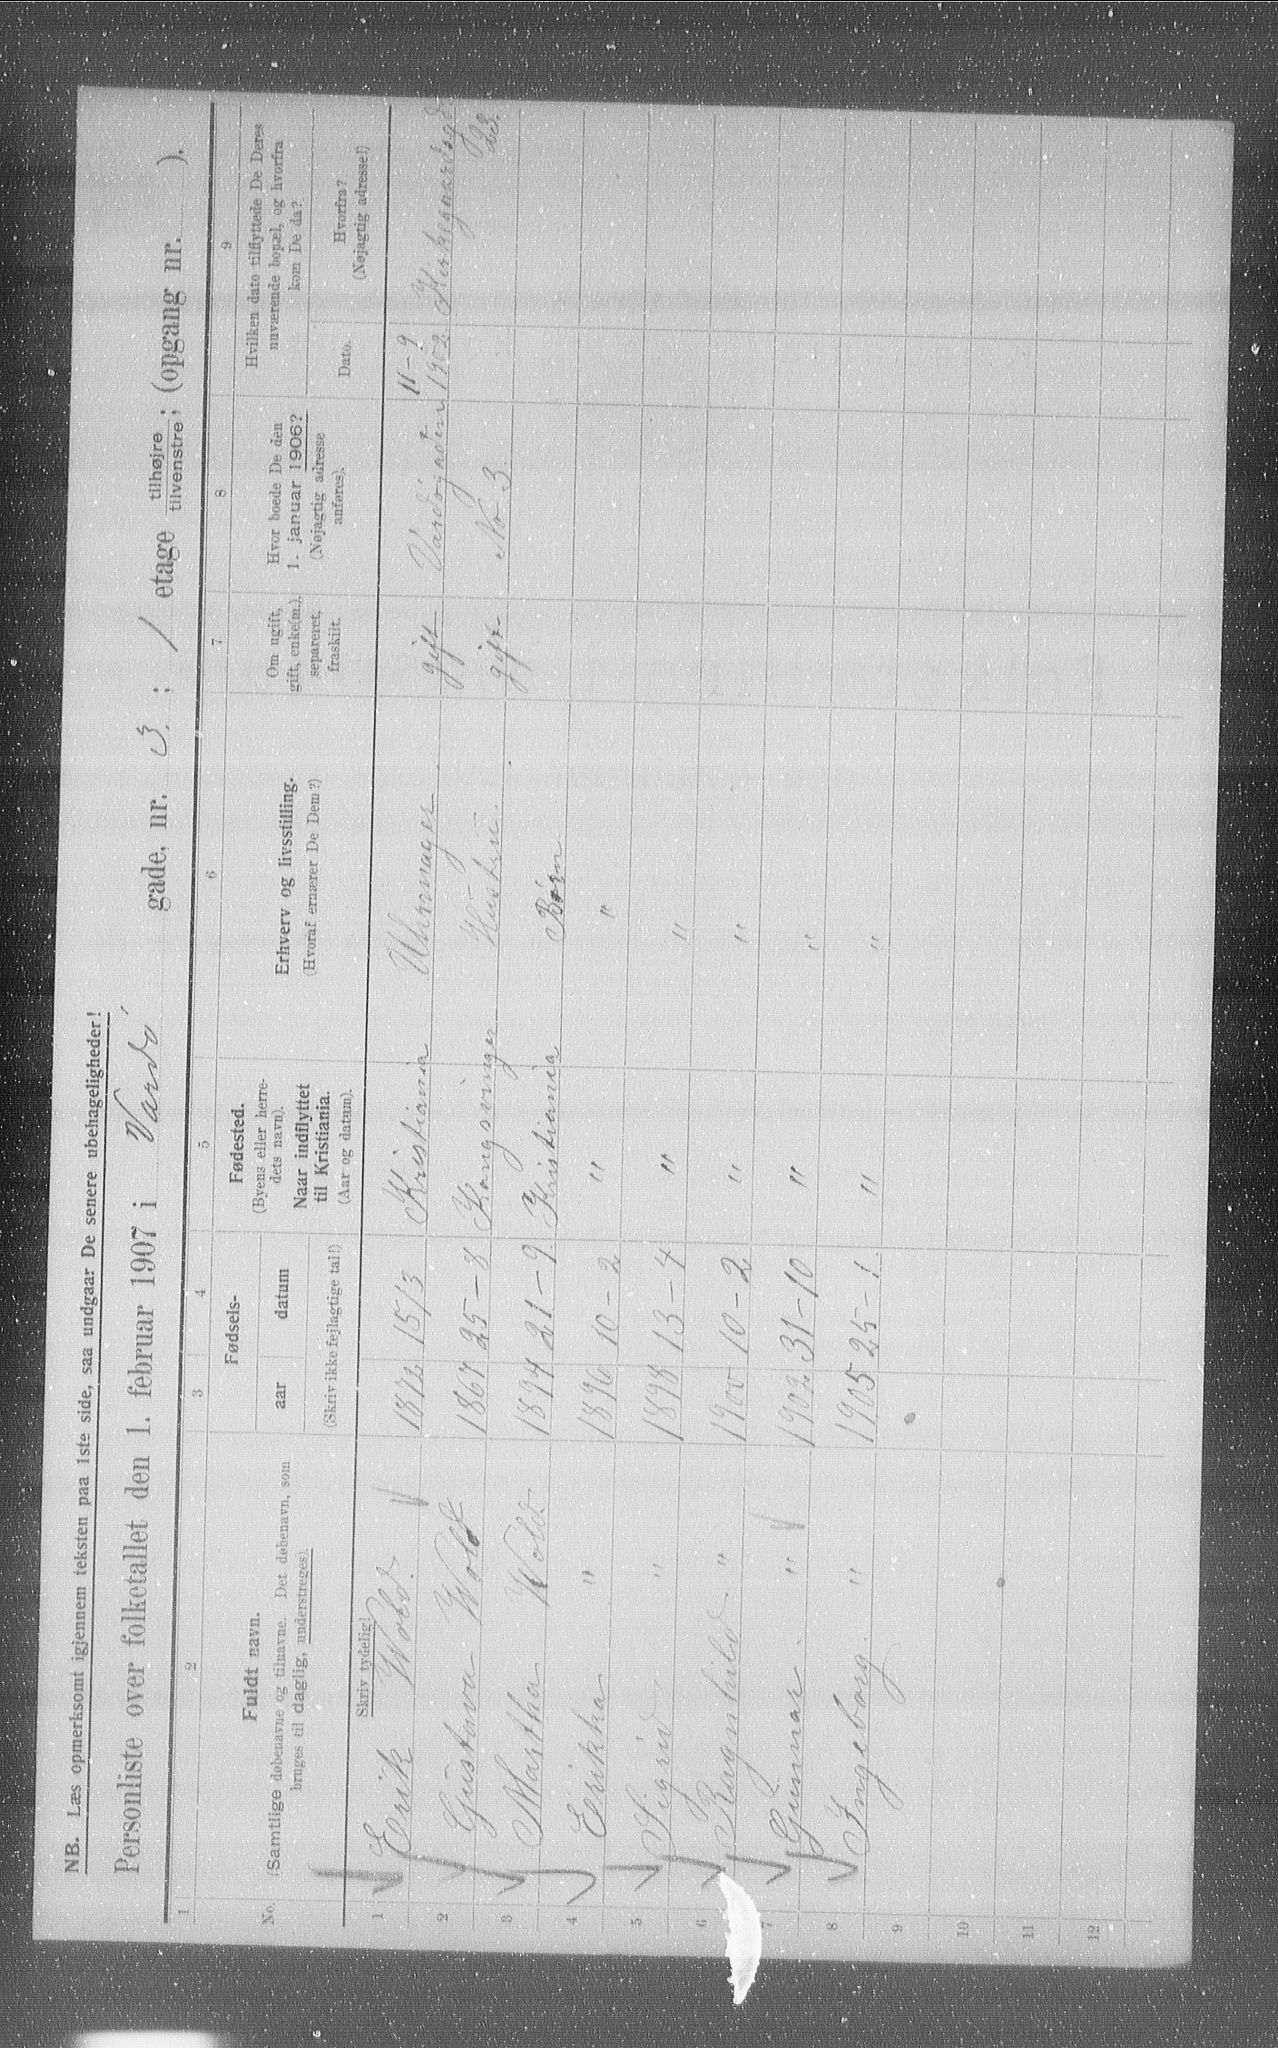 NB. Læs opmerksomt igjennem teksten paa 1ste side, saa undgaar De senere ubehageligheder!
Personliste over folketallet den 1. februar 1907 i Vardø gade, nr. 3. ; 1 etage tilhøjre / tilvenstre ; (opgang nr. ).
1 2 3 4 5 6 7 8 9
No. Fuldt navn. (Samtlige døbenavne og tilnavne. Det døbenavn, som bruges til daglig, understreges). Skriv tydelig!
Fødsels- aar datum (Skriv ikke fejlagtige tal!)
Fødested. (Byens eller herredets navn). Naar indflyttet til Kristiania. (Aar og datum).
Erhverv og livsstilling. (Hvoraf ernærer De Dem?)
Om ugift, gift, enke(m.), separeret, fraskilt.
Hvor boede De den 1. januar 1906? (Nøjagtig adresse anføres).
Hvilken dato tilflyttede De Deres nuværende bopæl, og hvorfra kom De da?
Dato. Hvorfra? (Nøjagtig adresse!)
1 Erik Wold. 1872 15/3 Kristiania Uhrmager gift Vardøgaden 11-9 1902 Kirkegaardsgd.
2 Gustava Wold 1867 25-8 Kongsvinger Hustru. gift No 3. 23.
3 Martha Wold 1894 21-9 Kristiania Børn
4 Erikka " 1896 10-2 " "
5 Sigrid " 1898 13-4 " "
6 Ragnhild " 1900 10-2 " "
7 Gunnar " 1902 31-10 " "
8 Ingeborg. " 1905 25-1. " "
9
10
11
12